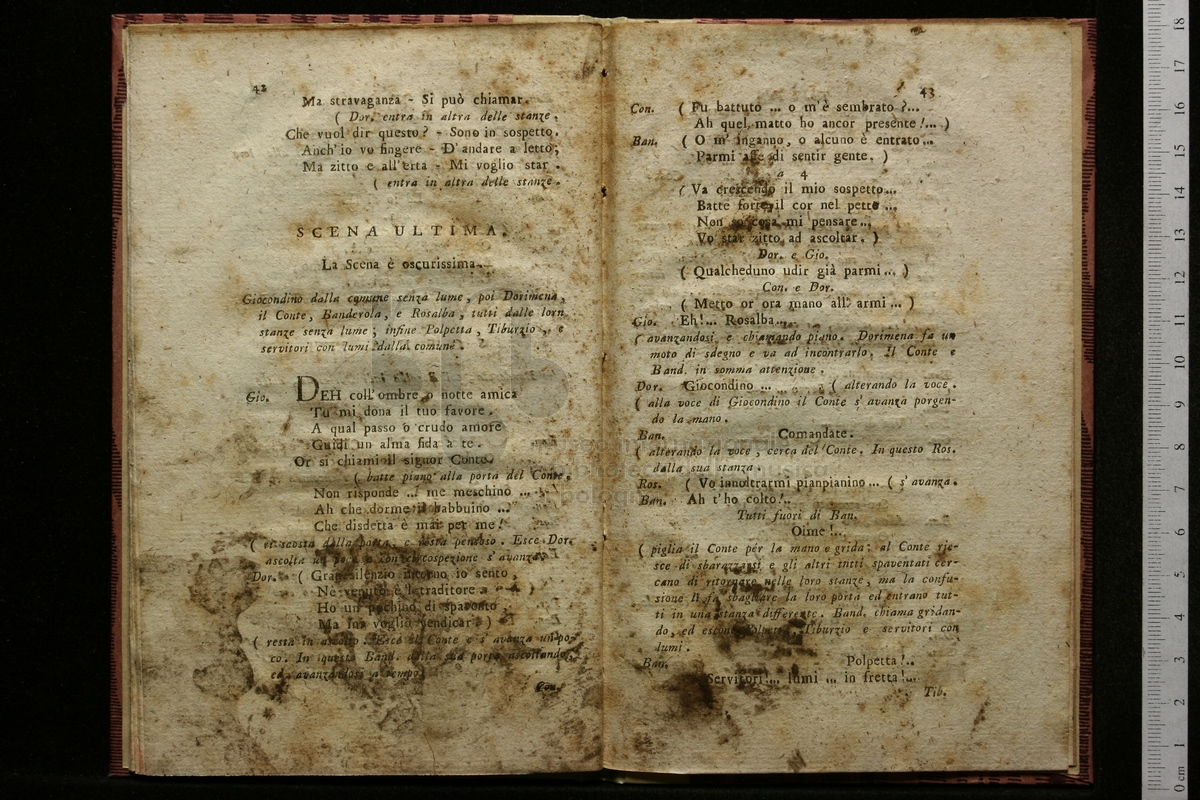 42
Ma stravaganza - Si può chiamar.
( Dor. entra in altra delle stanze.
Che vuol dir questo? - Sono in sospetto.
Anch'io vo fingere - D'andare a letto;
Ma zitto e all'erta - Mi voglio star.
( entra in altra delle stanze.
SCENA ULTIMA.
La Scena è oscurissima.
Giocondino dalla comune senza lume, poi Dorimena,
il Conte, Banderola, e Rosalba, tutti dalle loro
stanze senza lume; infine Polpetta, Tiburzio, e
servitori con lumi dalla comune.
Gio. DEH coll'ombre o notte amica
Tu mi dona il tuo favore.
A qual passo o crudo amore
Guidi un alma fida a te.
Or si chiami il signor Conte.
( batte piano alla porta del Conte.
Non risponde ... me meschino ...
Ah che dorme il babbuino ...
Che disdetta è mai per me!
( si scosta dalla porta, e resta pensoso. Esce Dor.
ascolta un poco e con circospezione s'avanza.
Dor. ( Gran silenzio intorno io sento,
Nè venuto è il traditore
Ho un pochino di spavento,
Ma mi voglio vendicar. )
( resta in ascolto. Esce il Conte e s'avanza un po-
co. In questo Band. dalla sua porta ascoltando,
ed avanzandosi a tempo.
Con.
43
Con. ( Fu battuto ... o m'è sembrato ?...
Ah quel matto ho ancor presente !... )
Ban. ( O m'inganno, o alcuno è entrato...
Parmi affe di sentir gente. )
a 4
( Va crescendo il mio sospetto...
Batte forte il cor nel petto ...
Non so cosa mi pensare...
Vo' star zitto ad ascoltar. )
Dor. e Gio.
( Qualcheduno udir già parmi ... )
Con. e Dor.
( Metto or ora mano all'armi ... )
Gio. Eh!... Rosalba...
( avanzandosi e chiamando piano. Dorimena fa un
moto di sdegno e va ad incontrarlo. Il Conte e
Band. in somma attenzione.
Dor. Giocondino ... ( alterando la voce.
( alla voce di Giocondino il Conte s'avanza porgen-
do la mano.
Ban. Comandate.
( alterando la voce, cerca del Conte. In questo Ros.
dalla sua stanza.
Ros. ( Vo innoltrarmi pianpianino ... ( s'avanza.
Ban. Ah t'ho colto!..
Tutti fuori di Ban.
Oime!..
( piglia il Conte per la mano e grida; al Conte rie-
sce di sbarazzarsi e gli altri tutti spaventati cer-
cano di ritornare nelle loro stanze, ma la confu-
sione li fa sbagliare la loro porta ed entrano tut-
ti in una stanza differente. Band. chiama gridan-
do, ed escono Polpetta, Tiburzio e servitori con
lumi.
Ban. Polpetta!..
Servitori!... lumi ... in fretta!...
Tib.